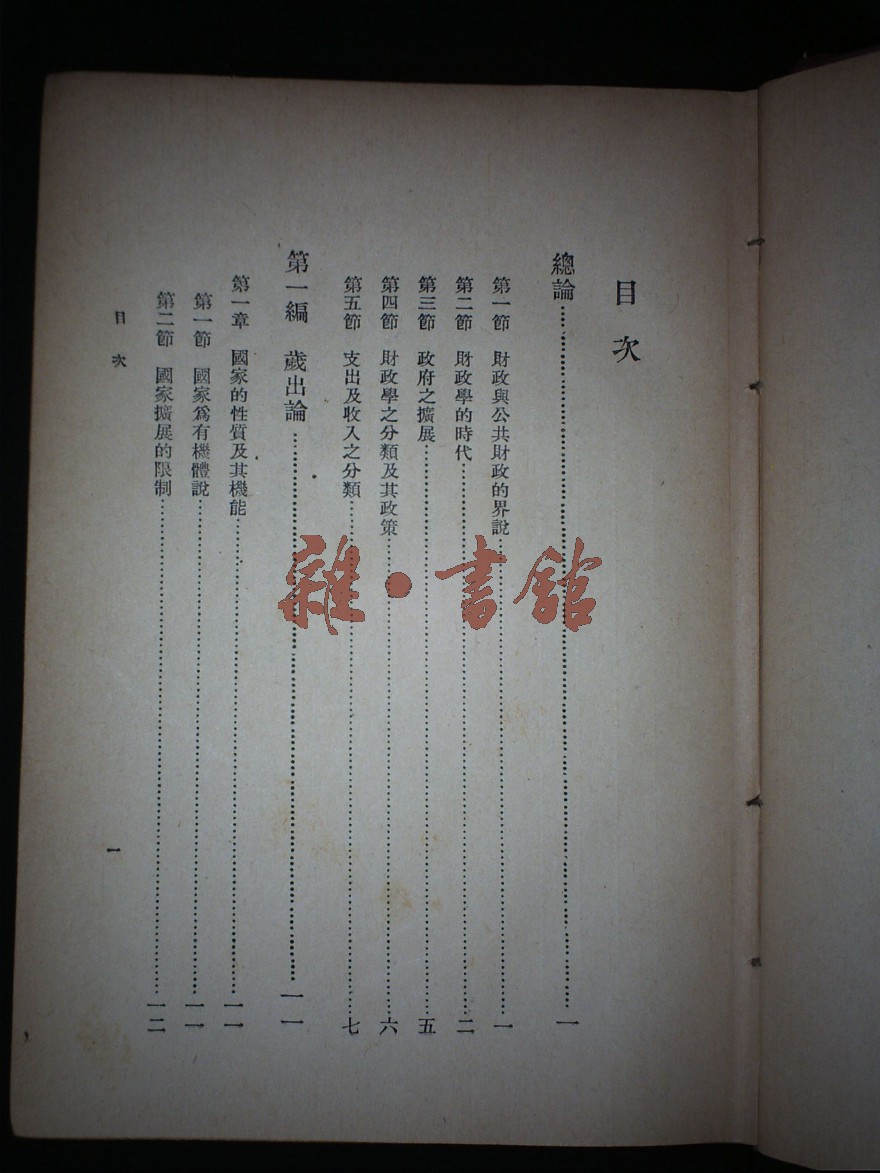 目次
總論……一
第一節 財政與公共財政的界說……一
第二節 財政學的時代……二
第三節 政府之擴展……五
第四節 財政學之分類及其政策……六
第五節 支出及收入之分類……七
第一編 歲出論……一一
第一章 國家的性質及其機能……一一
第一節 國家爲有機體說……一一
第二節 國家擴展的限制……一二
目次 一
雜·書館